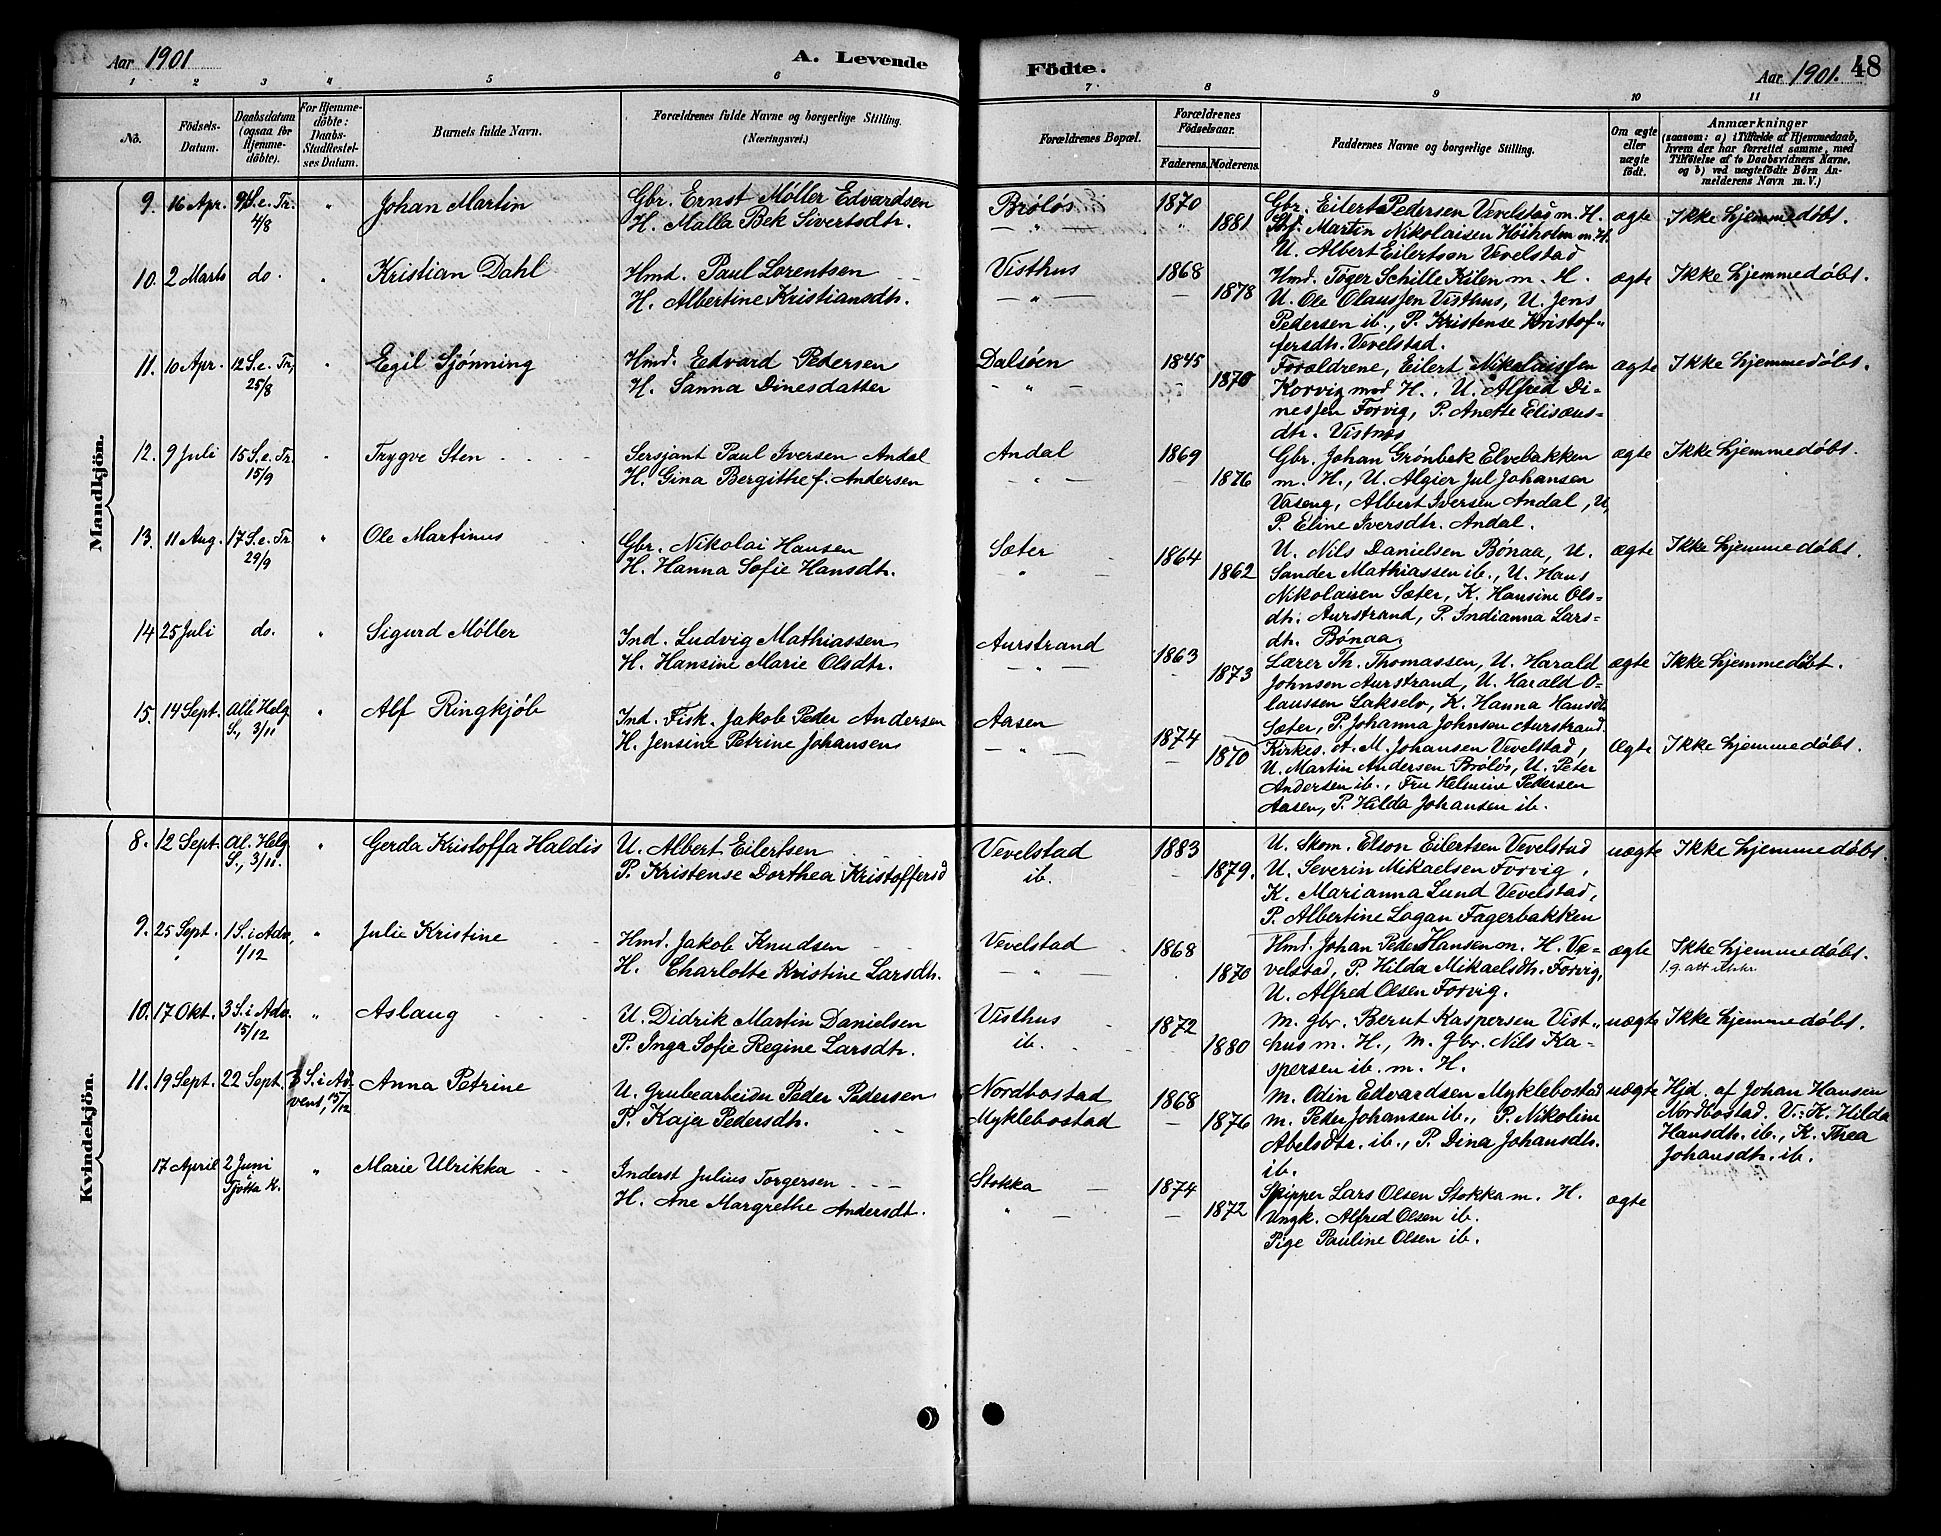 Aar 1901
A. Levende
Födte.
Aar 1901.
48
1 2 3 4 5 6 7. 8 9 10 11
No.
Födsels-
Datum.
Daabsdatum
(ogsaa for
Hjemme-
döbte).
For Hjemme-
döbte:
Daabs-
Stadfæstel-
ses Datum.
Barnets fulde Navn.
Forældrenes fulde Navne og borgerlige Stilling.
(Næringsvei.)
Forældrenes Bopæl.
Forældrenes
Födselsaar.
Faderens. Moderens.
Faddernes Navne og borgerlige Stilling.
Om ægte
eller
uægte
födt.
Anmærkninger
(saasom: a) i Tilfælde af Hjemmedaab,
hvem der har forrettet samme, med
Tilföielse af to Daabsvidners Navne,
og b) ved uægtefödte Börn An-
melderens Navn m. V.)
Mandkjön.
9. 16 Apr. 9 S. e. Tr.
4/8
" Johan Martin
Gbr. Ernst Møller Edvardsen
H. Malla Bek Sivertsdtr.
Brøløs
— " —
1870
1881
Gbr. Eilert Pedersen Vevelstad m. H.
Martin Nikolaisen Høiholm m. H.
U. Albert Eilertsen Vevelstad
ægte Ikke hjemmedøbt.
10. 2 Marts do. " Kristian Dahl
Hmd. Paul Lorentsen
H. Albertine Kristiansdtr.
Visthus
— " —
1868
1878
Hmd. Tøger Schille Kilen m. H.
U. Ole Olaussen Visthus, U. Jens
Pedersen ib., P. Kristense Kristof-
fersdtr. Vevelstad.
ægte Ikke hjemmedøbt.
11. 10 Apr. 12 S. e. Tr.
25/8
" Egil Sjønning
Hmd. Edvard Pedersen
H. Sanna Dinesdatter
Dalsøen
— " —
1845
1870
Forældrene, Eilert Nikolaissen
Korvig med H., U. Alfred Di-
nessen Forvig, P. Anette Elisæus-
dtr. Vistnes
ægte Ikke hjemmedøbt.
12. 9 Juli 15 S. e. Tr.
15/9
" Trygve Sten
Sersjant Paul Iversen Andal
H. Gina Bergithe f. Andersen
Andal
— " —
1869
1876
Gbr. Johan Grønbek Elvebakken
m. H., U. Algier Jul Johansen
Vaseng, Albert Iversen Andal, U,
P. Eline Iversdtr. Andal.
ægte Ikke hjemmedøbt.
13. 11 Aug. 17 S. e. Tr
29/9
" Ole Martinus
Gbr. Nikolai Hansen
H. Hanna Sofie Hansdtr.
Sæter
— " —
1864
1862
U. Nils Danielsen Bønaa, U.
Sander Mathiassen ib., U. Hans
Nikolaisen Sæter, K. Hansine Ols-
dtr. Aurstrand, P. Indianna Lars-
dtr. Bønaa.
ægte Ikke hjemmedøbt.
14 25 Juli do. " Sigurd Møller
Ind. Ludvig Mathiassen
H. Hansine Marie Olsdtr.
Aurstrand
— " —
1863
1873
Lærer Th. Thomassen, U. Harald
Johnsen Aurstrand, U. Harald O-
laussen Lakselv, K. Hanna Hansdtr
Sæter, P. Johanna Johnsen Aurstrand.
ægte Ikke hjemmedøbt.
15. 14 Sept. Alle Helg.
S., 3/11
" Alf Ringkjøb
Ind. Fisk. Jakob Peder Andersen
H. Jensine Petrine Johansen
Aasen
— " —
1874
1870
Kirkes. A. M. Johansen Vevelstad,
U. Martin Andersen Brøløs, U. Peter
Andersen ib., Fru Helmine Pedersen
Aasen, P. Hilda Johansen ib.
Ægte Ikke hjemmedøbt.
Kvindekjön.
8. 12 Sept. Al. Helg
S., 3/11.
" Gerda Kristoffa Haldis
U. Albert Eilertsen
P. Kristense Dorthea Kristoffersd
Vevelstad
ib.
1883
1879.
U. Skom. Elson Eilertsen Vevelstad
U. Severin Mikaelsen Forvig,
K. Marianna Lund Vevelstad,
P. Albertine Logan Fagerbakken
uægte Ikke hjemmedøbt.
9. 25 Sept. 1 S. i Adv,
1/12
" Julie Kristine
Hmd. Jakob Knudsen
H. Charlotte Kristine Larsdtr.
Vevelstad
— " —
1868
1870
Hmd. Johan Peder Hansen m. H. Ve-
velstad, P. Hilda Mikaelsdtr. Forvig,
U. Alfred Olsen Forvig.
ægte Ikke hjemmedøbt.
10. 17 Okt. 3 S. i Adv.
15/12
" Aslaug
U. Didrik Martin Danielsen
P. Inga Sofie Regine Larsdtr.
Visthus
ib.
1872
1880
M. Gbr. Bernt Kaspersen Vist-
hus m. H., M. Gbr. Nils Ka-
spersen ib. m. H.
uægte Ikke hjemmedøbt.
11. 19 Sept. 22 Sept. 3 S. i Ad-
vent, 15/12
Anna Petrine
U. Grubearbeider Peder Pedersen
P. Kaja Pedersdtr.
Nordbostad
Myklebostad
1868
1876
M. Odin Edvardsen Myklebostad
m. Peder Johansen ib., P. Nikoline
Abelsdtr. ib., P. Dina Johansdtr.
ib.
uægte Hjd. af Johan Hansen
Nordbostad. V.: K. Hilda
Hansdtr. ib., K. Thea
Johansdtr. ib.
17 April 2 Juni
i
Tjøtta K.
" Marie Ulrikka
Inderst Julius Torgersen
H. Ane Margrethe Andersdt.
Stokka
" —
1874
1872
Skipper Lars Olsen Stokka m. H.
Ungk. Alfred Olsen ib.
Pige Pauline Olsen ib.
ægte